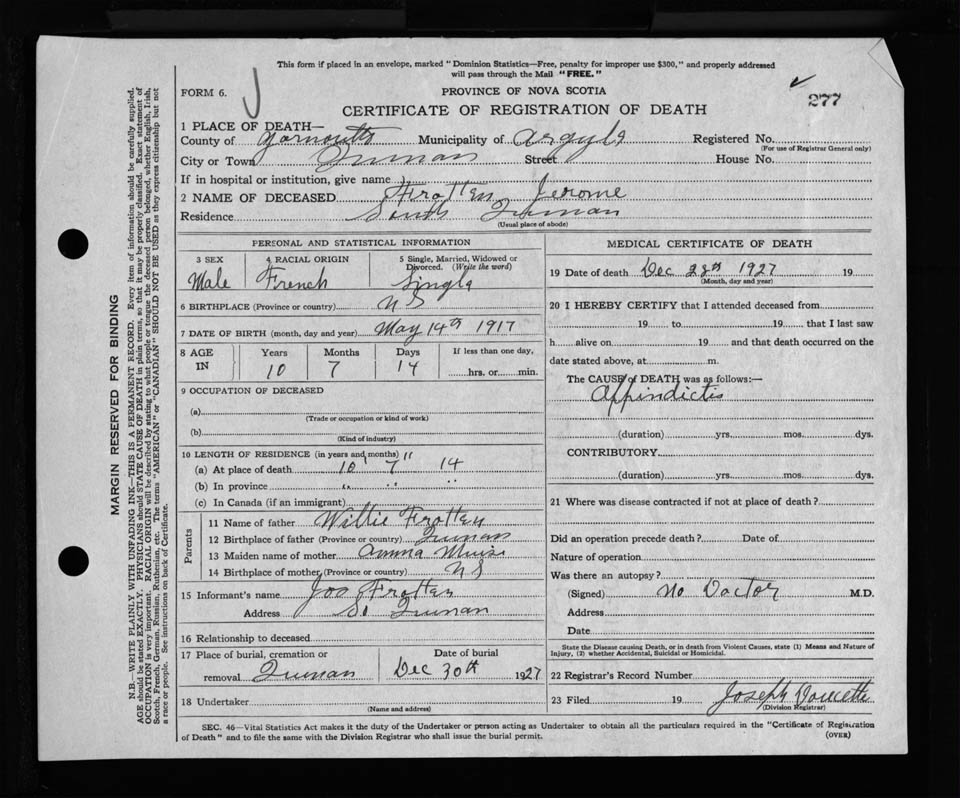 This form if placed in an envelope, marked "Dominion Statistics—Free, penalty for improper use $300," and properly addressed
will pass through the Mail "FREE."
FORM 6. J PROVINCE OF NOVA SCOTIA 277
CERTIFICATE OF REGISTRATION OF DEATH
1 PLACE OF DEATH—
County of Yarmouth Municipality of Argyle Registered No.
(For use of Registrar General only)
City or Town Quinan Street House No.
If in hospital or institution, give name
2 NAME OF DECEASED Frotten Jerome
Residence South Quinan
(Usual place of abode)
PERSONAL AND STATISTICAL INFORMATION
3 SEX 4 RACIAL ORIGIN 5 Single, Married, Widowed or
Divorced. (Write the word)
Male French Single
6 BIRTHPLACE (Province or country) N S
7 DATE OF BIRTH (month, day and year) May 14th 1917
8 AGE IN Years Months Days If less than one day,
10 7 14 hrs. or min.
9 OCCUPATION OF DECEASED
(a)
(Trade or occupation or kind of work)
(b)
(Kind of industry)
10 LENGTH OF RESIDENCE (in years and months)
(a) At place of death 10 7 14
(b) In province " " "
(c) In Canada (if an immigrant)
Parents
11 Name of father Willie Frotten
12 Birthplace of father (Province or country) Quinan
13 Maiden name of mother Anna Muise
14 Birthplace of mother (Province or country) N S
15 Informant's name Joe Frotten
Address So Quinan
16 Relationship to deceased
17 Place of burial, cremation or Date of burial
removal Quinan Dec 30th 1927
18 Undertaker
(Name and address)
MEDICAL CERTIFICATE OF DEATH
19 Date of death Dec 28th 1927 19
(Month, day and year)
20 I HEREBY CERTIFY that I attended deceased from
19 to 19 that I last saw
h alive on 19 and that death occurred on the
date stated above, at m.
The CAUSE of DEATH was as follows:—
Appindictis
(duration) yrs. mos. dys.
CONTRIBUTORY
(duration) yrs. mos. dys.
21 Where was disease contracted if not at place of death?
Did an operation precede death? Date of
Nature of operation
Was there an autopsy?
(Signed) No Doctor M.D.
Address
Date
State the Disease causing Death, or in death from Violent Causes, state (1) Means and Nature of
Injury, (2) whether Accidental, Suicidal or Homicidal.
22 Registrar's Record Number
23 Filed 19 Joseph Doucette
(Division Registrar)
SEC. 46—Vital Statistics Act makes it the duty of the Undertaker or person acting as Undertaker to obtain all the particulars required in the "Certificate of Registration
of Death" and to file the same with the Division Registrar who shall issue the burial permit. (OVER)
MARGIN RESERVED FOR BINDING
N.B.—WRITE PLAINLY WITH UNFADING INK—THIS IS A PERMANENT RECORD. Every item of information should be carefully supplied.
AGE should be stated EXACTLY. PHYSICIANS should STATE CAUSE OF DEATH in plain terms, so that it may be properly classified. Exact statement of
OCCUPATION is very important. RACIAL ORIGIN will be described by stating to what people or tongue the deceased person belonged, whether English, Irish,
Scotch, French, German, Russian, Ruthenian, etc. The terms "AMERICAN" or "CANADIAN" SHOULD NOT BE USED as they express citizenship but not
a race or people. See instructions on back of Certificate.